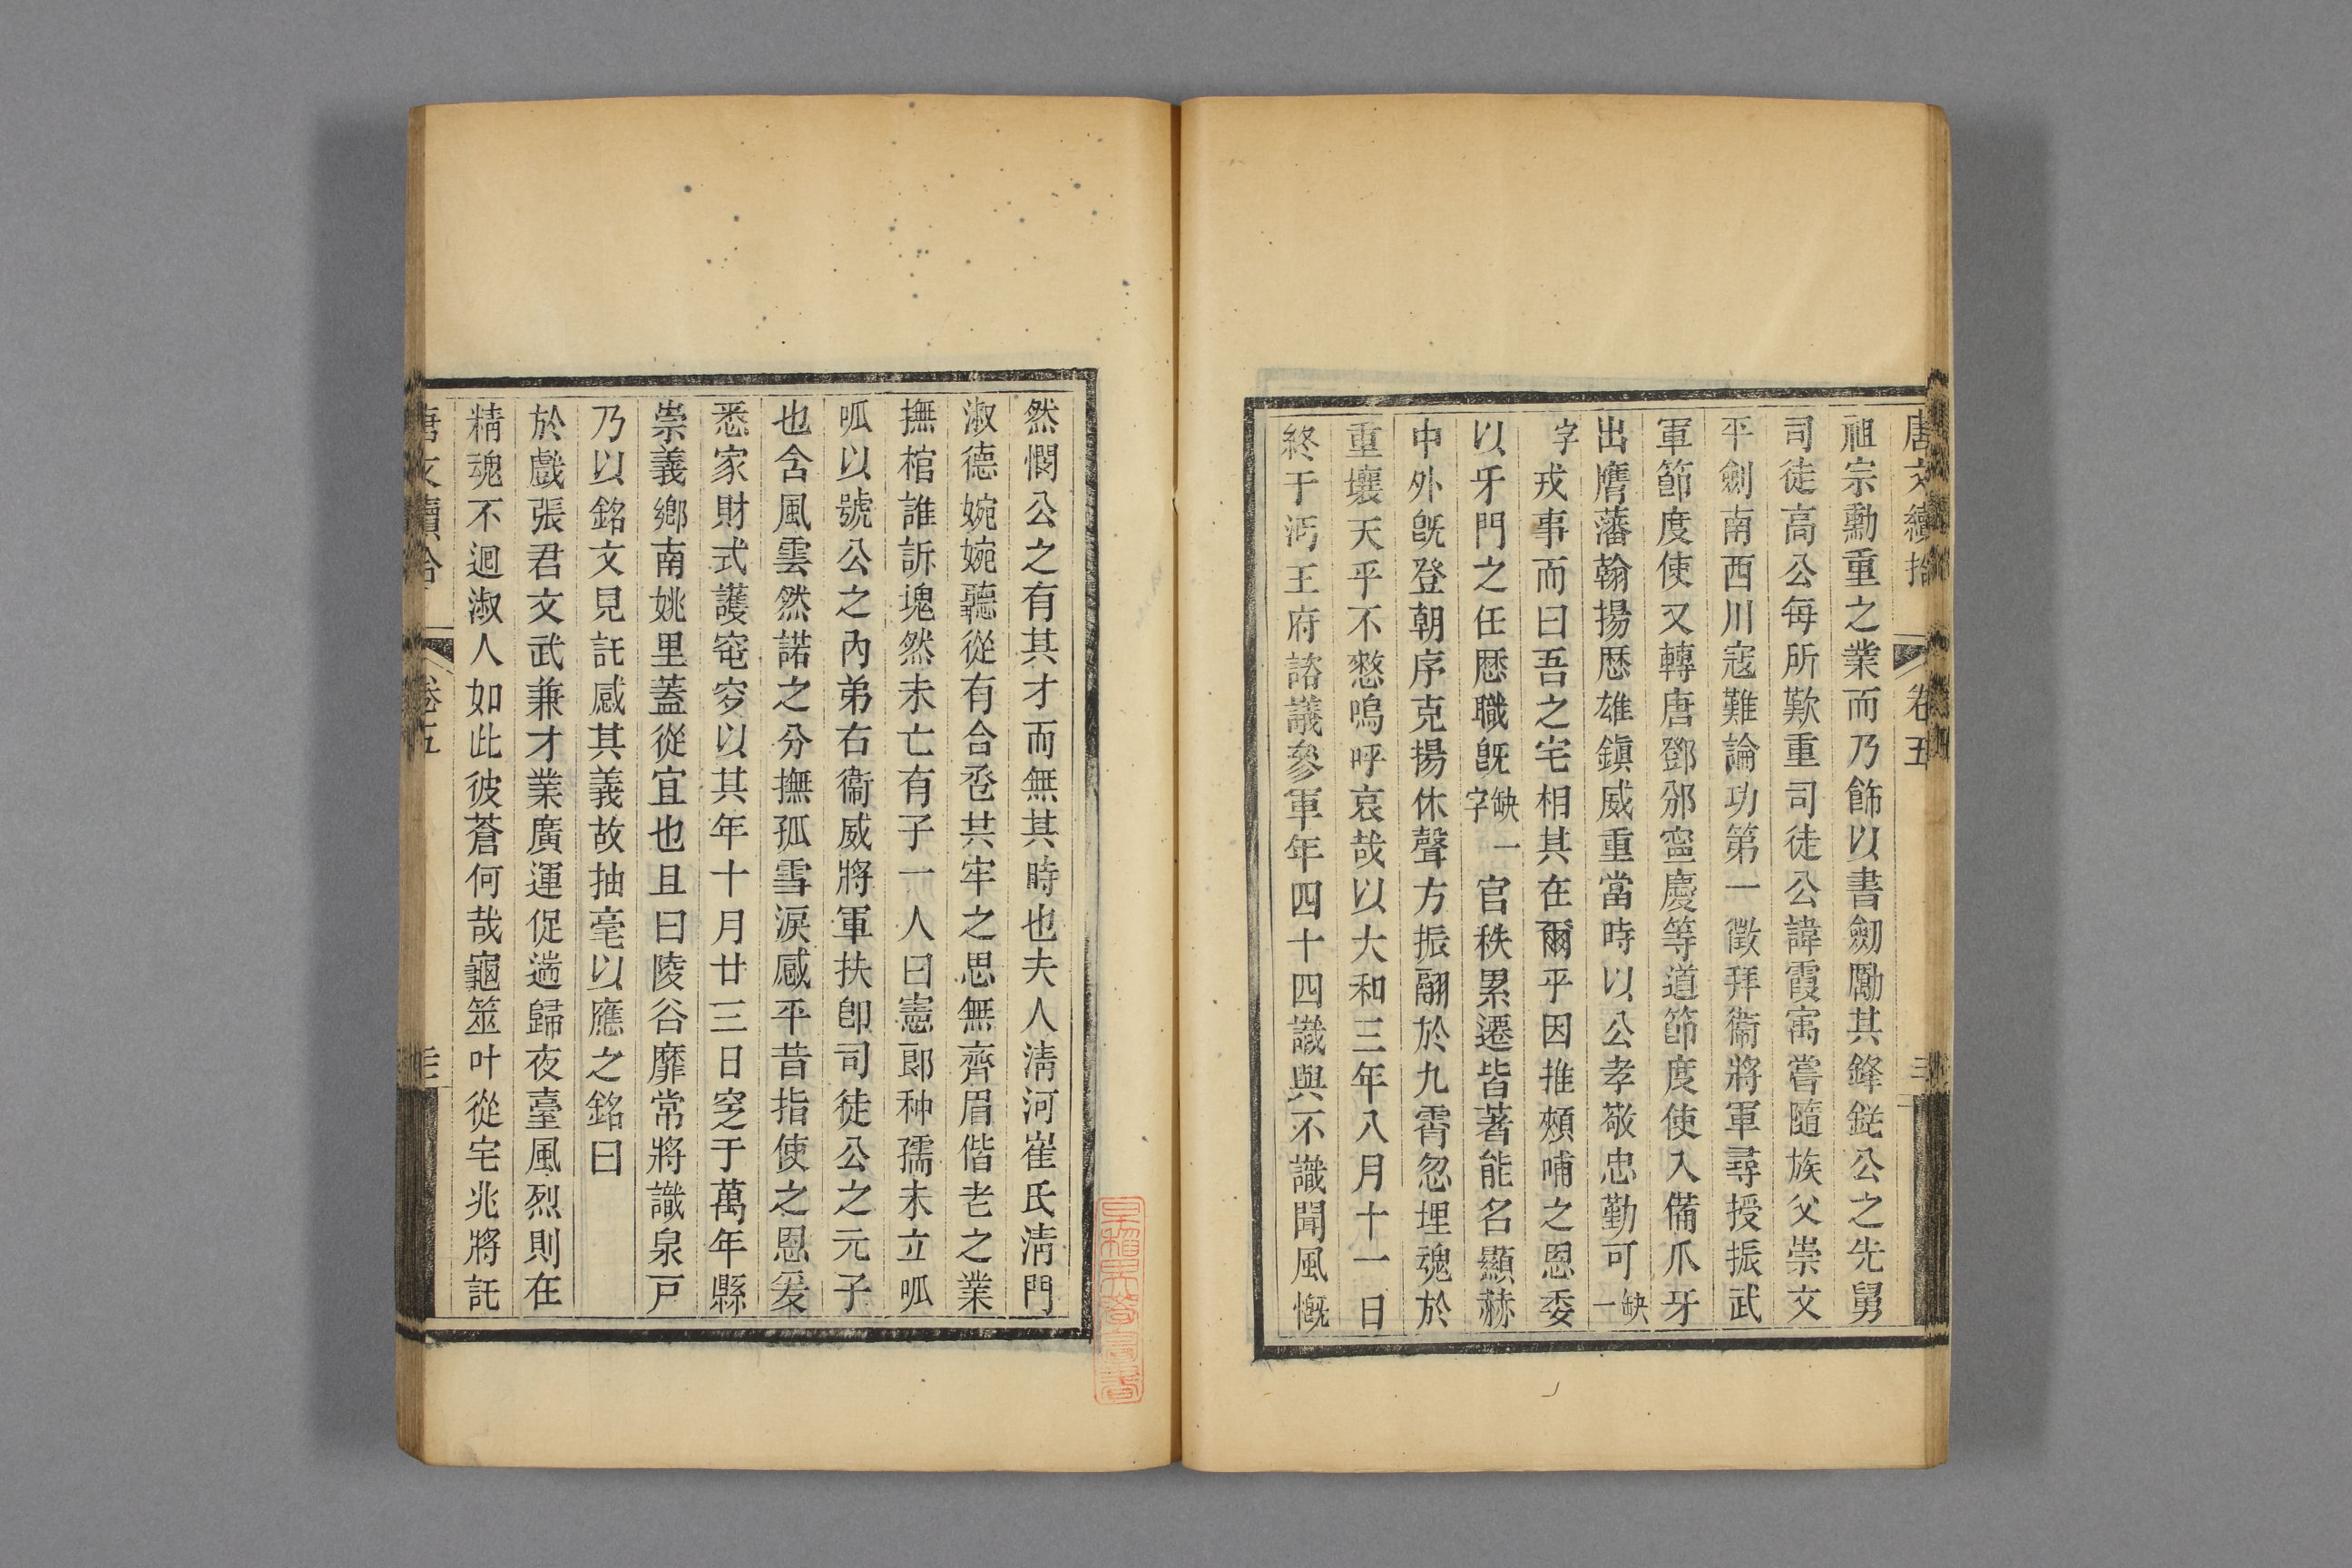 唐文續拾 卷五 三
祖宗勳重之業而乃飾以書劒勵其鋒鋩公之先舅
司徒高公每所歎重司徒公諱霞寓嘗隨族父崇文
平劍南西川寇難論功第一徵拜衞將軍尋授振武
軍節度使又轉唐鄧邠寧慶等道節度使入備爪牙
出膺藩翰揚歴雄鎭威重當時以公孝敬忠勤可缺一
字戎事而曰吾之宅相其在爾乎因推頰哺之恩委
以牙門之任歴職旣缺一字官秩累遷皆著能名顯赫
中外旣登朝序克揚休聲方振翮於九霄忽埋魂於
重壤天乎不憗嗚呼哀哉以大和三年八月十一日
終于沔王府諮議參軍年四十四識與不識聞風慨
然憫公之有其才而無其時也夫人淸河崔氏淸門
淑德婉婉聽從有合卺共牢之思無齊眉偕老之業
撫棺誰訴塊然未亡有子一人曰憲郞种孺未立呱
呱以號公之內弟右衞威將軍扶卽司徒公之元子
也含風雲然諾之分撫孤雪淚感平昔指使之恩爰
悉家財式護窀穸以其年十月廿三日窆于萬年縣
崇義鄉南姚里蓋從宜也且曰陵谷靡常將識泉戸
乃以銘文見託感其義故抽毫以應之銘曰
於戲張君文武兼才業廣運促遄歸夜臺風烈則在
精魂不迴淑人如此彼蒼何哉龜筮叶從宅兆將託
唐文續拾 卷五